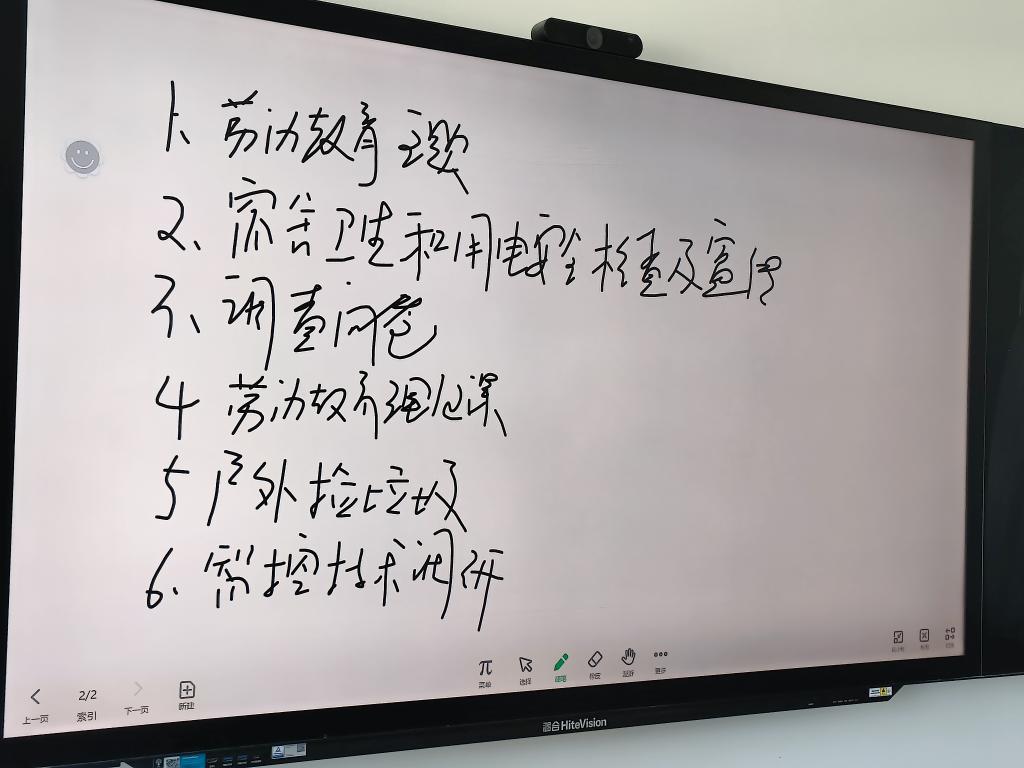 1、劳动教育主题
2、宿舍卫生和用电安全检查及宣传
3、调查问卷
4 劳动教育理论课
5 户外捡垃圾
6、管控技术调研
上一页
2/2
索引
下一页
新建
菜单
选择
橡皮
漫游
更多
HiteVision